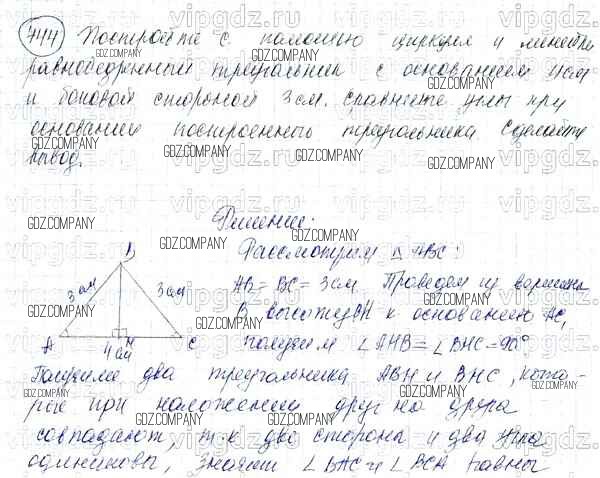 744 Постройте с помощью циркуля и линейки
равнобедренный треугольник с основанием 4 см
и боковой стороной 3 см. Сравните углы при
основании построенного треугольника. Сделайте
вывод.
Решение.
Рассмотрим △ ABC:
AB = BC = 3 см. Проведем из вершины
B высоту BH к основанию AC,
получим ∠AHB = ∠BHC = 90°
Получили два треугольника ABH и BHC, кото-
рые при наложении друг на друга
совпадают, т.к две стороны и два угла
одинаковы, значит ∠BAC и ∠BCA равны
B
3 см
3 см
A
H
C
4 см
GDZ.COMPANY
vipgdz.ru